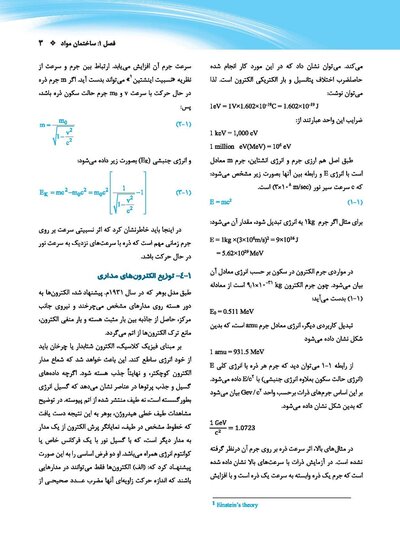 فصل ۱: ساختمان مواد ❖ ۳
می‌کند. می‌توان نشان داد که در این مورد کار انجام شده
حاصلضرب اختلاف پتانسیل و بار الکتریکی الکترون است. لذا
می‌توان نوشت:
1eV = 1V×1.602×10⁻¹⁹C = 1.602×10⁻¹⁹ J
ضرایب این واحد عبارتند از:
1 keV = 1,000 eV
1 million eV(MeV) = 10⁶ eV
طبق اصل هم ارزی جرم و انرژی انشتاین، جرم m معادل
است با انرژی E و رابطه بین آنها بصورت زیر مشخص می‌شود:
c سرعت سیر نور (۳×۱۰⁸ m/sec) است.
E = mc² (۱-۱)
برای مثال اگر جرم 1kg به انرژی تبدیل شود. مقدار آن می‌شود:
E = 1kg ×(3×10⁸m/s)² = 9×10¹⁶ J
= 5.62×10²⁹ MeV
در مواردی جرم الکترون در سکون بر حسب انرژی معادل آن
بیان می‌شود. چون جرم الکترون ۹/۱×۱۰⁻³¹ kg است از معادله
(۱-۱) بدست می‌آید:
E₀ = 0.511 MeV
تبدیل کاربردی دیگر، انرژی معادل جرم amu است، که بدین
شکل نشان داده می‌شود
1 amu = 931.5 MeV
از رابطه ۱-۱ می‌توان دید که جرم هر ذره با انرژی کلی E
(انرژی حالت سکون بعلاوه انرژی جنبشی) با E/c² داده می‌شود.
بر این اساس جرم‌های ذرات برحسب واحد Gev/c² بیان می‌شود
که بدین شکل نشان داده می‌شود.
1 GeV / c² = 1.0723
در مثال‌های بالا، اثر سرعت ذره بر روی جرم آن درنظر گرفته
نشده است. در آزمایش ذرات با سرعت‌های بالا نشان داده شده
است که جرم یک ذره وابسته به سرعت یک ذره است و با افزایش
سرعت جرم آن افزایش می‌یابد. ارتباط بین جرم و سرعت از
نظریه «نسبیت اینشتین¹» می‌تواند بدست آید. اگر m جرم ذره
در حال حرکت با سرعت v و m₀ جرم حالت سکون ذره باشد،
پس:
m = m₀ / √(1 − v²/c²) (۲-۱)
و انرژی جنبشی (Eᴋ) بصورت زیر داده می‌شود:
Eᴋ = mc² −m₀c² = m₀c² [1 / √(1 − v²/c²) −1] (۳-۱)
در اینجا باید خاطرنشان کرد که اثر نسبیتی سرعت بر روی
جرم زمانی مهم است که ذره با سرعت‌های نزدیک به سرعت نور
در حال حرکت باشد.
۱-۴- توزیع الکترون‌های مداری
طبق مدل بوهر که در سال ۱۹۳۱م. پیشنهاد شد، الکترون‌ها به
دور هسته روی مدارهای مشخص می‌چرخند و نیروی جانب
مرکز، حاصل از جاذبه بین بار مثبت هسته و بار منفی الکترون،
مانع ترک الکترون‌ها از اتم می‌گردد.
بر مبنای فیزیک کلاسیک، الکترون شتابدار یا چرخان باید
از خود انرژی ساطع کند. این باعث خواهد شد که شعاع مدار
الکترون کوچکتر، و نهایتاً جذب هسته شود. اگرچه داده‌های
گسیل و جذب پرتوها در عناصر نشان می‌دهد که گسیل انرژی
بطور گسسته است، نه طیف منتشر شده از اتم پیوسته. در توضیح
مشاهدات طیف خطی هیدروژن، بوهر به این نتیجه دست یافت
که خطوط مشخص در طیف، نمایانگر پرش الکترون از یک مدار
به مدار دیگر است، که با گسیل نور با یک فرکانس خاص یا
کوانتوم انرژی همراه می‌باشد. او دو فرض اساسی را به این صورت
پیشنهاد کرد که: (الف) الکترون‌ها فقط می‌توانند در مدارهایی
باشند که اندازه حرکت زاویه‌ای آنها مضرب عــدد صحیحـی از
¹ Einstein's theory